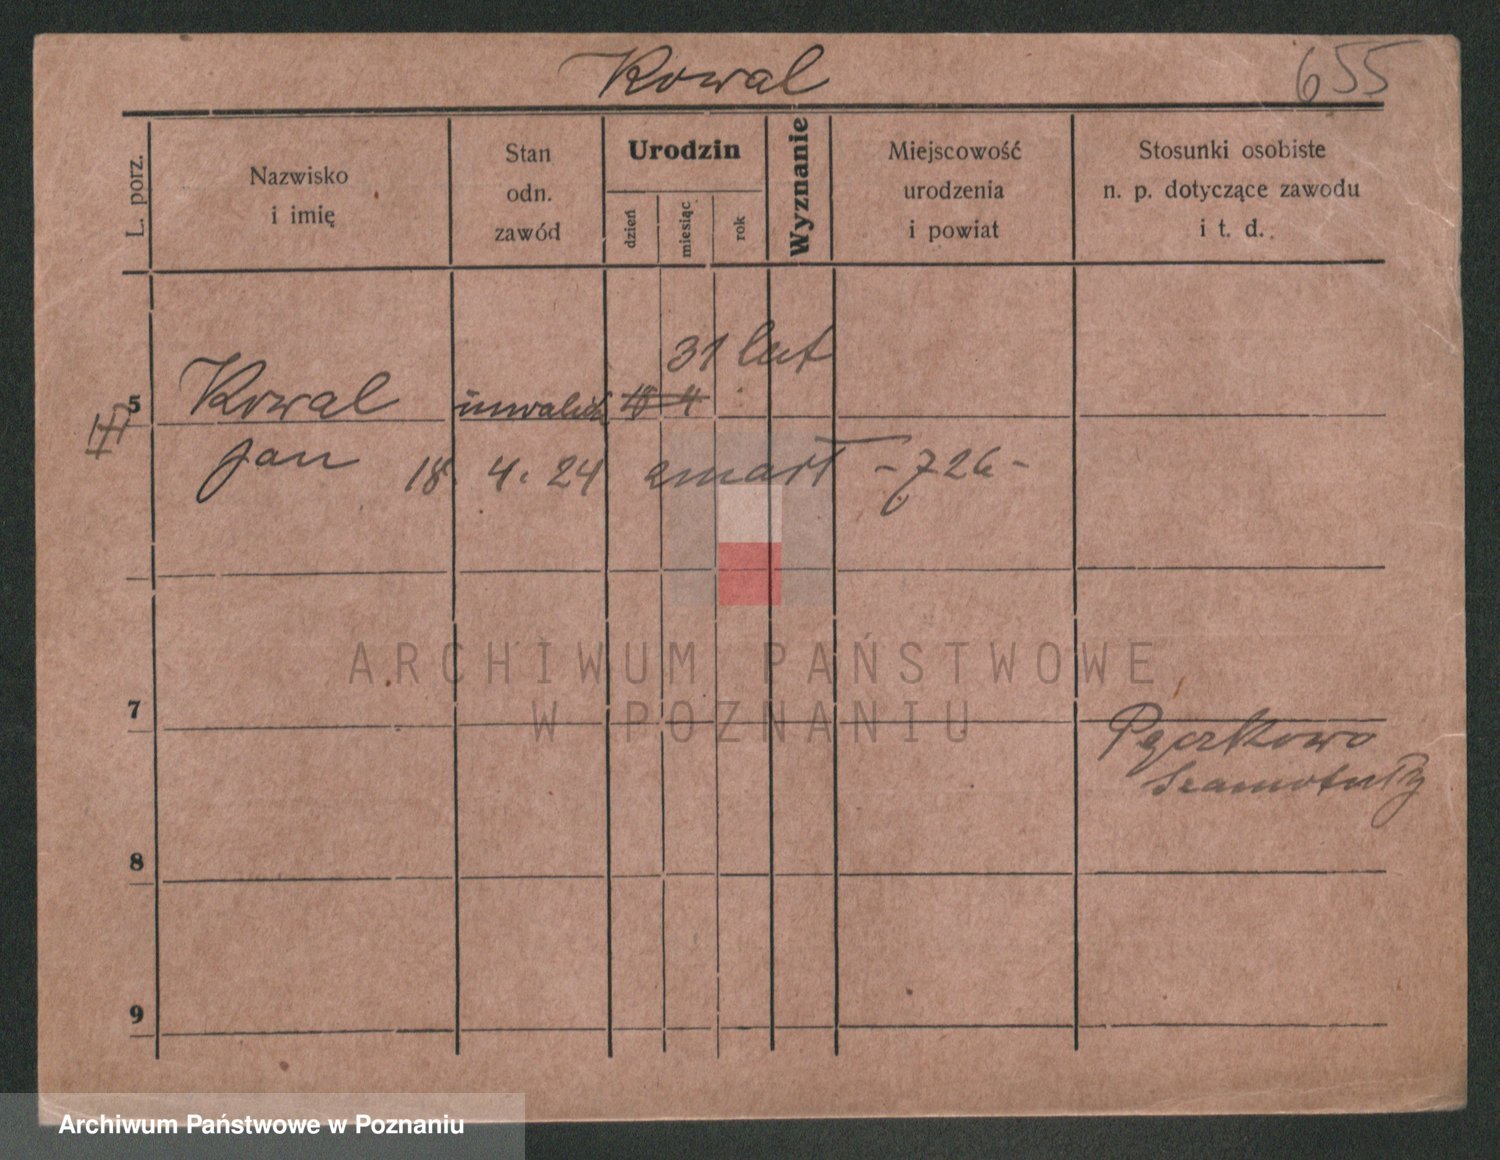 Kowal 655
L. porz.
Nazwisko
i imię
Stan
odn.
zawód
Urodzin
dzień
miesiąc
rok
Wyznanie
Miejscowość
urodzenia
i powiat
Stosunki osobiste
n. p. dotyczące zawodu
i t. d.
31 lat
5 Kowal inwalida 18 4
Jan 18. 4. 24 zmarł - 726 -
ARCHIWUM PAŃSTWOWE
W POZNANIU
7
Pączkowo
Szamotuły
8
9
Archiwum Państwowe w Poznaniu